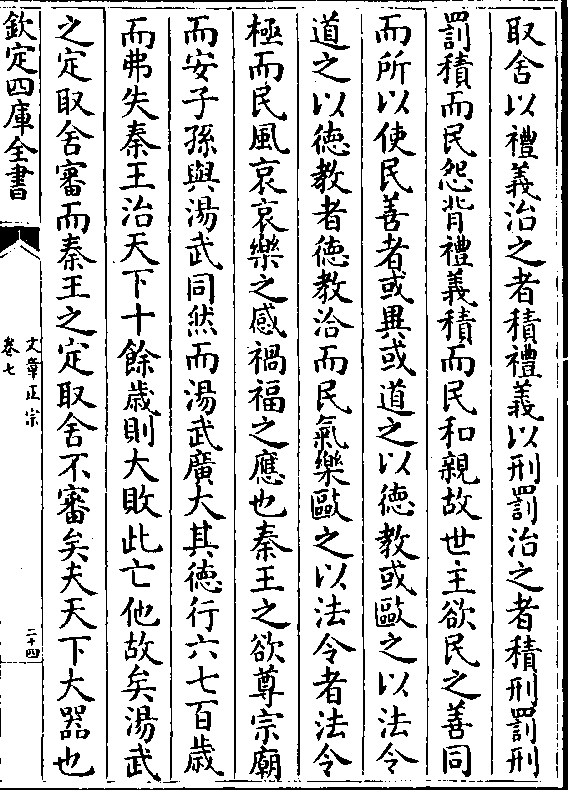 取舍以禮義治之者積禮義以刑罰治之者積刑罰刑
罰積而民怨背禮義積而民和親故世主欲民之善同
而所以使民善者或異或道之以徳教或歐之以法令
道之以徳教者徳教洽而民氣樂歐之以法令者法令
極而民風哀哀樂之感禍福之應也秦王之欲尊宗廟
而安子孫與湯武同然而湯武廣大其徳行六七百歲
而弗失秦王治天下十餘歲則大敗此亡他故矣湯武
之定取舍審而秦王之定取舍不審矣夫天下大器也
欽定四庫全書
文章正宗
卷七
二十四